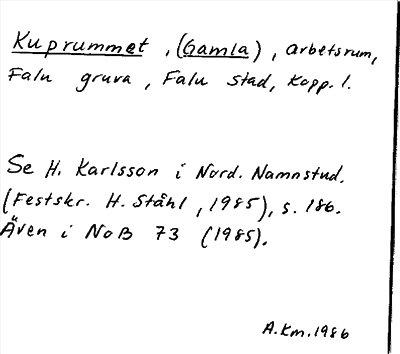 Kuprummet, (Gamla), arbetsrum,
Falu gruva, Falu stad, Kopp. l.
Se H. Karlsson i Nord. Namnstud.
(Festskr. H. Ståhl, 1985), s. 186.
Även i NoB 73 (1985).
A.Km. 1986